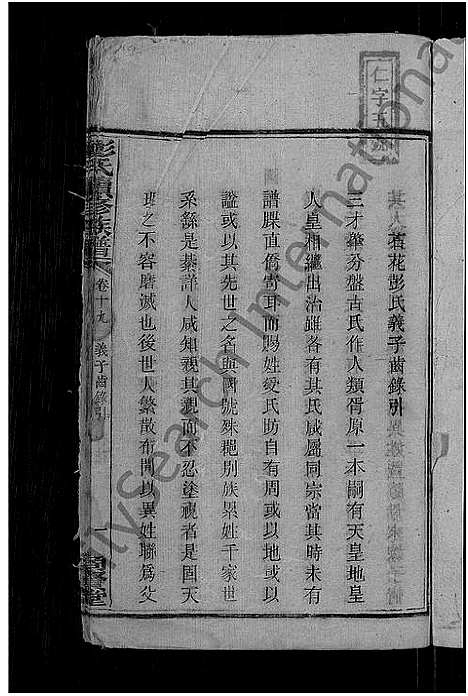 仁字五號
荷花彭氏義子齒錄引
三才肇分盤古氏作人類胥原一本嗣有天皇地皇
人皇相繼出治雖各有其氏咸屬同宗當其時未有
譜牒直僑寄耳而賜姓受氏昉自有周或以地或以
諡或以其先世之名與國號殊徽別族累姓千家世
系繇是綦詳人咸知親其親而不忍塗視者是固天
理之不容磨滅也後世人繁散布間以異姓聯為父
彭氏續修族譜
卷十九
義子齒錄引
一
堂
MySearch International